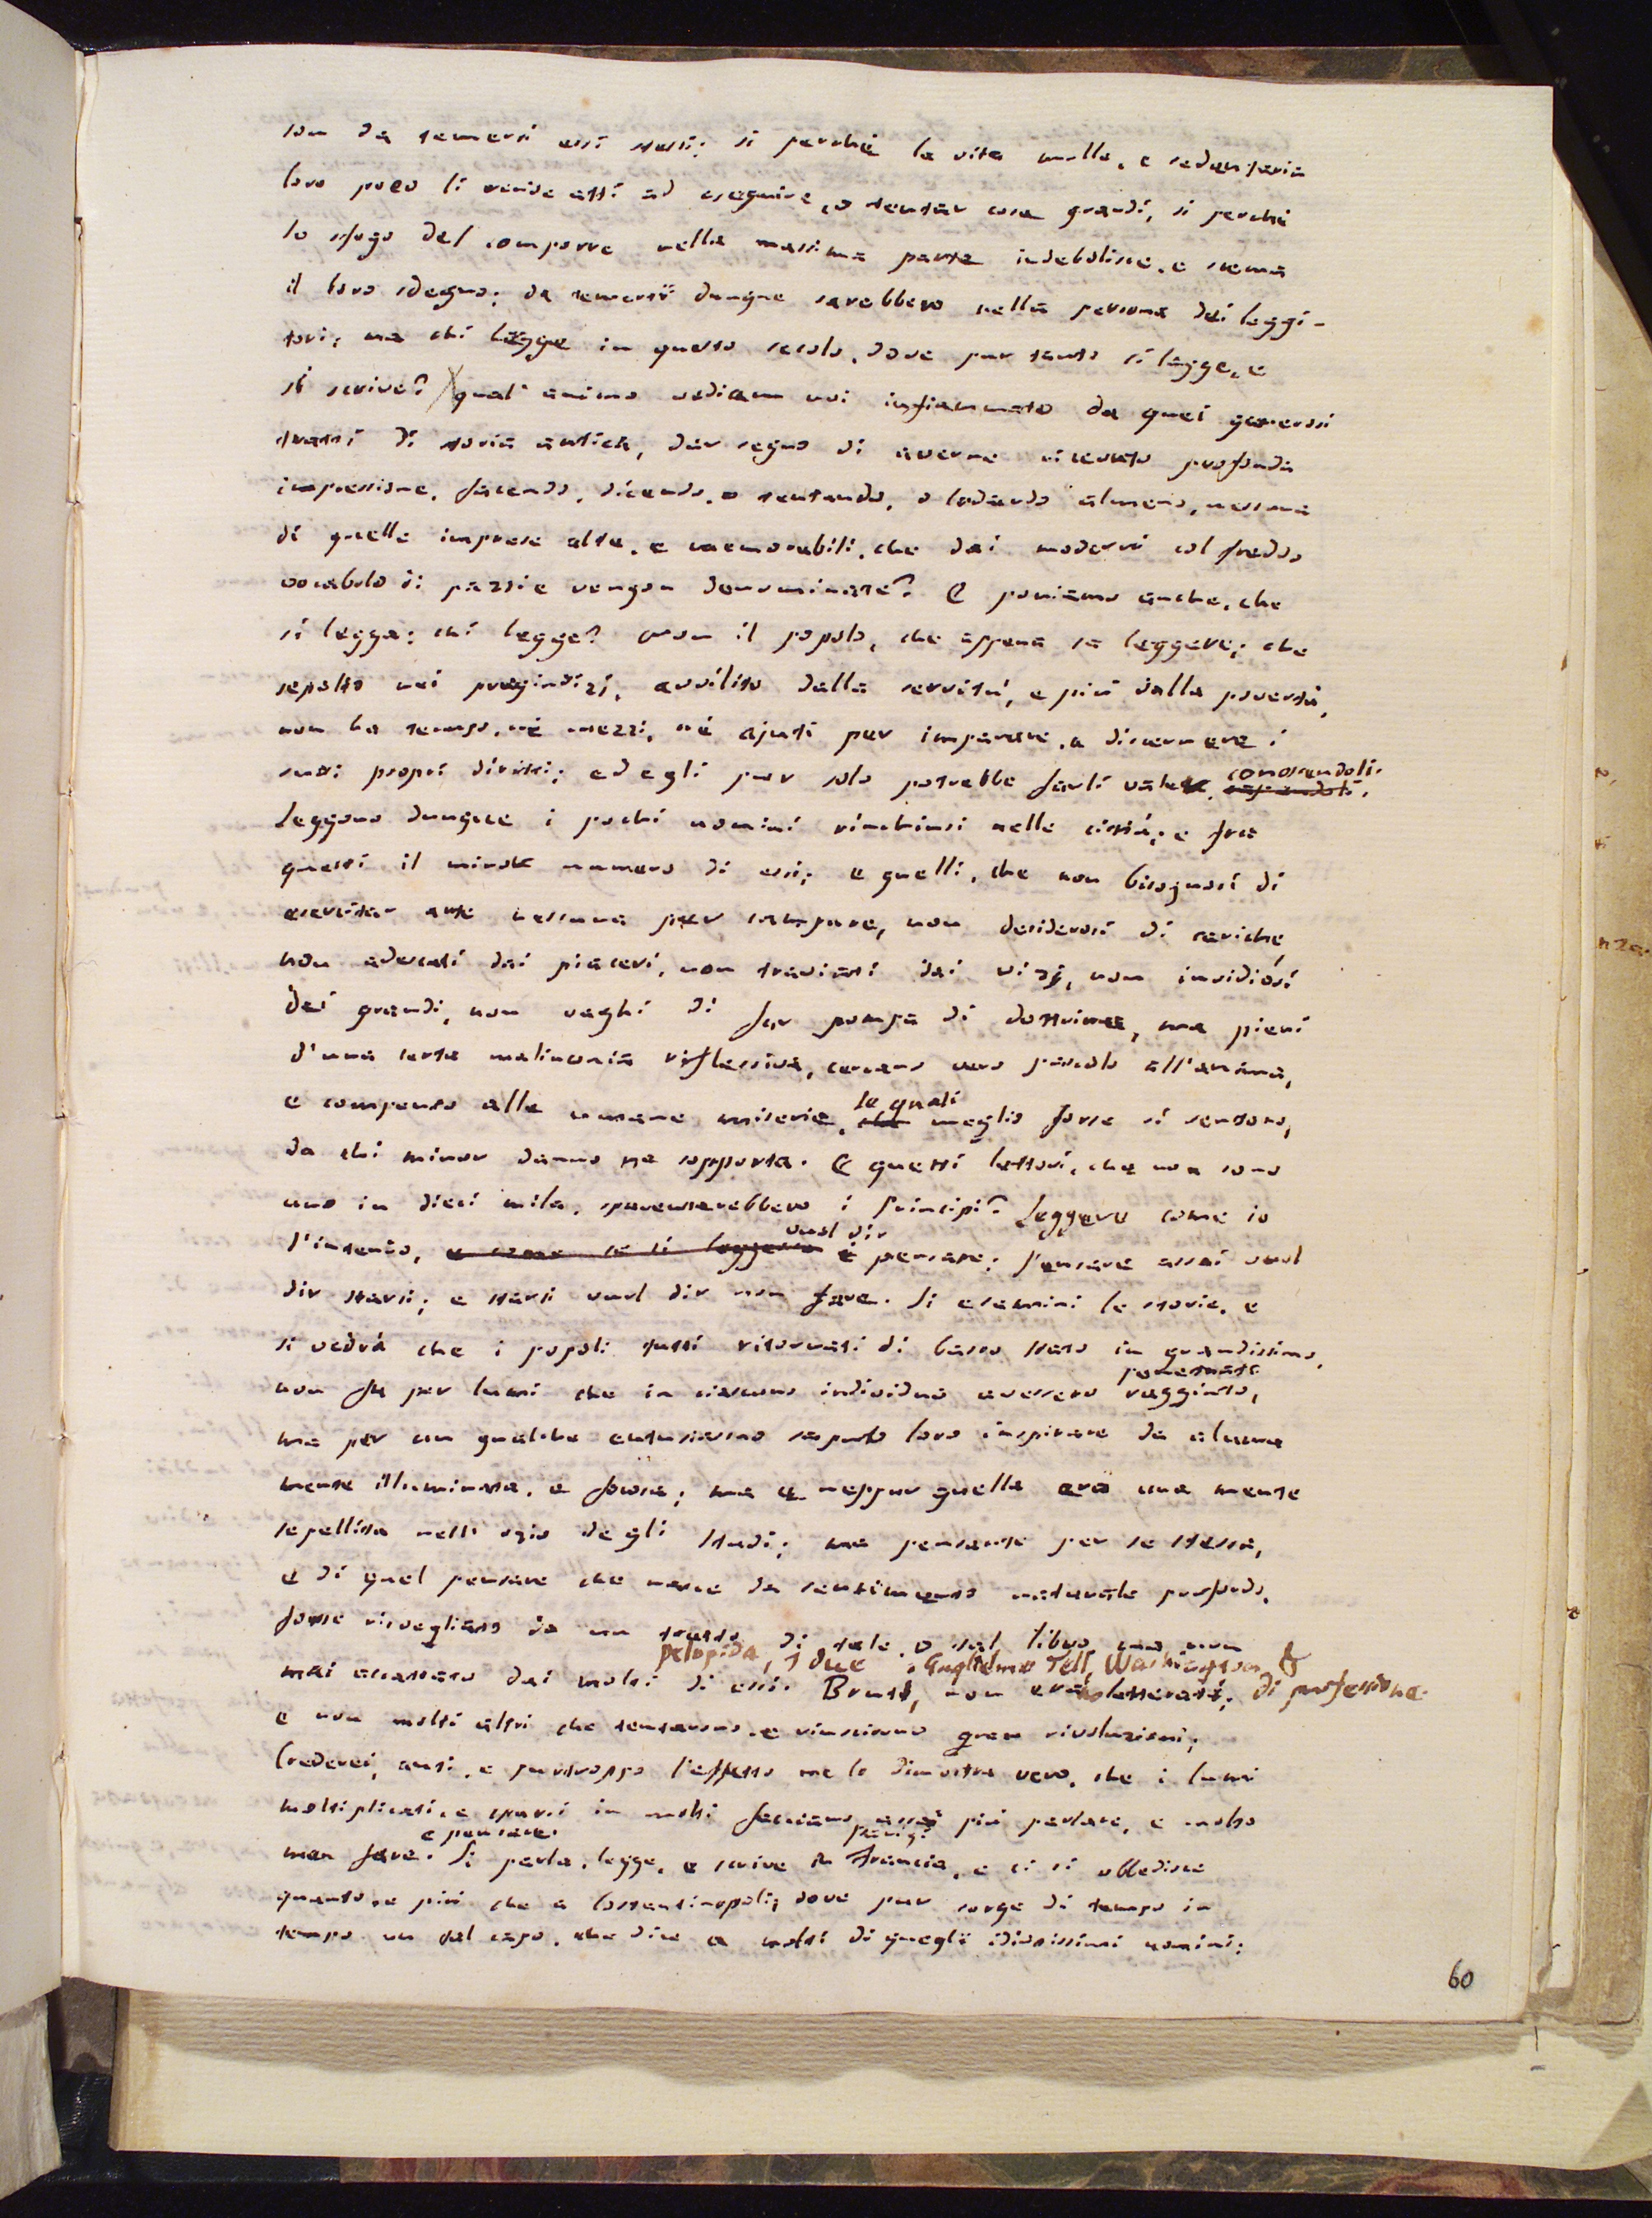 son da temersi essi stessi; sì perchè la vita molle, e sedentaria
loro poco li rende atti ad eseguire, o tentar cose grandi, sì perchè
lo sfogo del comporre nella massima parte indebolisce, e scema
il loro sdegno; da temersi dunque sarebbero nella persona dei leggi-
tori; ma chi legge in questo secolo, dove pur tanto si legge, e
si scrive? qual animo vediam noi infiammato da quei generosi
tratti di storia antica, dar segno di averne ricevuto profonda
impressione, facendo, dicendo, o tentando, o lodando almeno, nessuna
di quelle imprese alte, e memorabili, che dai moderni col freddo
vocabolo di pazzie vengon denominate? E poniamo anche, che
si legga; chi legge? non il popolo, che appena sa leggere; che
sepolto nei pregiudizj, avvilito dalla servitù, e più dalla povertà,
non ha tempo, nè mezzi, nè ajuti per imparare, a discernere i
suoi propri diritti; ed egli pur solo potrebbe farli valere, conoscendoli.
Leggono dunque i pochi uomini rinchiusi nelle città; e fra
questi il minor numero di essi; e quelli, che non bisognosi di
esercitar arte nessuna per campare, non desiderosi di cariche,
non adescati dai piaceri, non traviati dai vizj, non invidiosi
dei grandi, non vaghi di far pompa di dottrina, ma pieni
d'una certa malinconia riflessiva, cercano vero pascolo all'anima,
e compenso alle umane miserie, le quali meglio forse si sentono,
da chi minor danno ne sopporta. E questi lettori, che non sono
uno in dieci mila, spaventarebbero i Principi? Leggere come io
l'intendo, e come se si leggesse vuol dir pensare; Pensare assai vuol
dir starsi; e starsi vuol dir non fare. Si esamini le storie, e
si vedrà che i popoli tutti ritornati di basso stato in grandissimo,
non fu per lumi che in ciascuno individuo avessero penetrato raggiunto,
ma per un qualche entusiasmo saputo loro inspirare da alcuna
mente illuminata, e focosa; ma neppur quella era una mente
sepellita nell'ozio degli studi; ma pensante per se stessa,
e di quel pensare che nasce da sentimento naturale profondo,
forse risvegliato da un tratto di tale, o tal libro, ma non
Pelopida, i due Guglielmo Tell, Washington &
mai accattato dai molti di essi. Bruti, non eran letterati; di professione
e non molti altri che tentarono, e riuscirono gran rivoluzioni;
Crederei, anzi, e purtroppo l'effetto me lo dimostra vero, che i lumi
moltiplicati, e sparsi in molti facciano assai più parlare, e molto
e pensare. Parigi
men fare. Si parla, legge, e scrive in Francia, e ci si obbedisce
quanto, e più che a Costantinopoli; dove pur sorge di tempo in
tempo un tal capo, che dice a molti di quegli idiotissimi uomini;
60